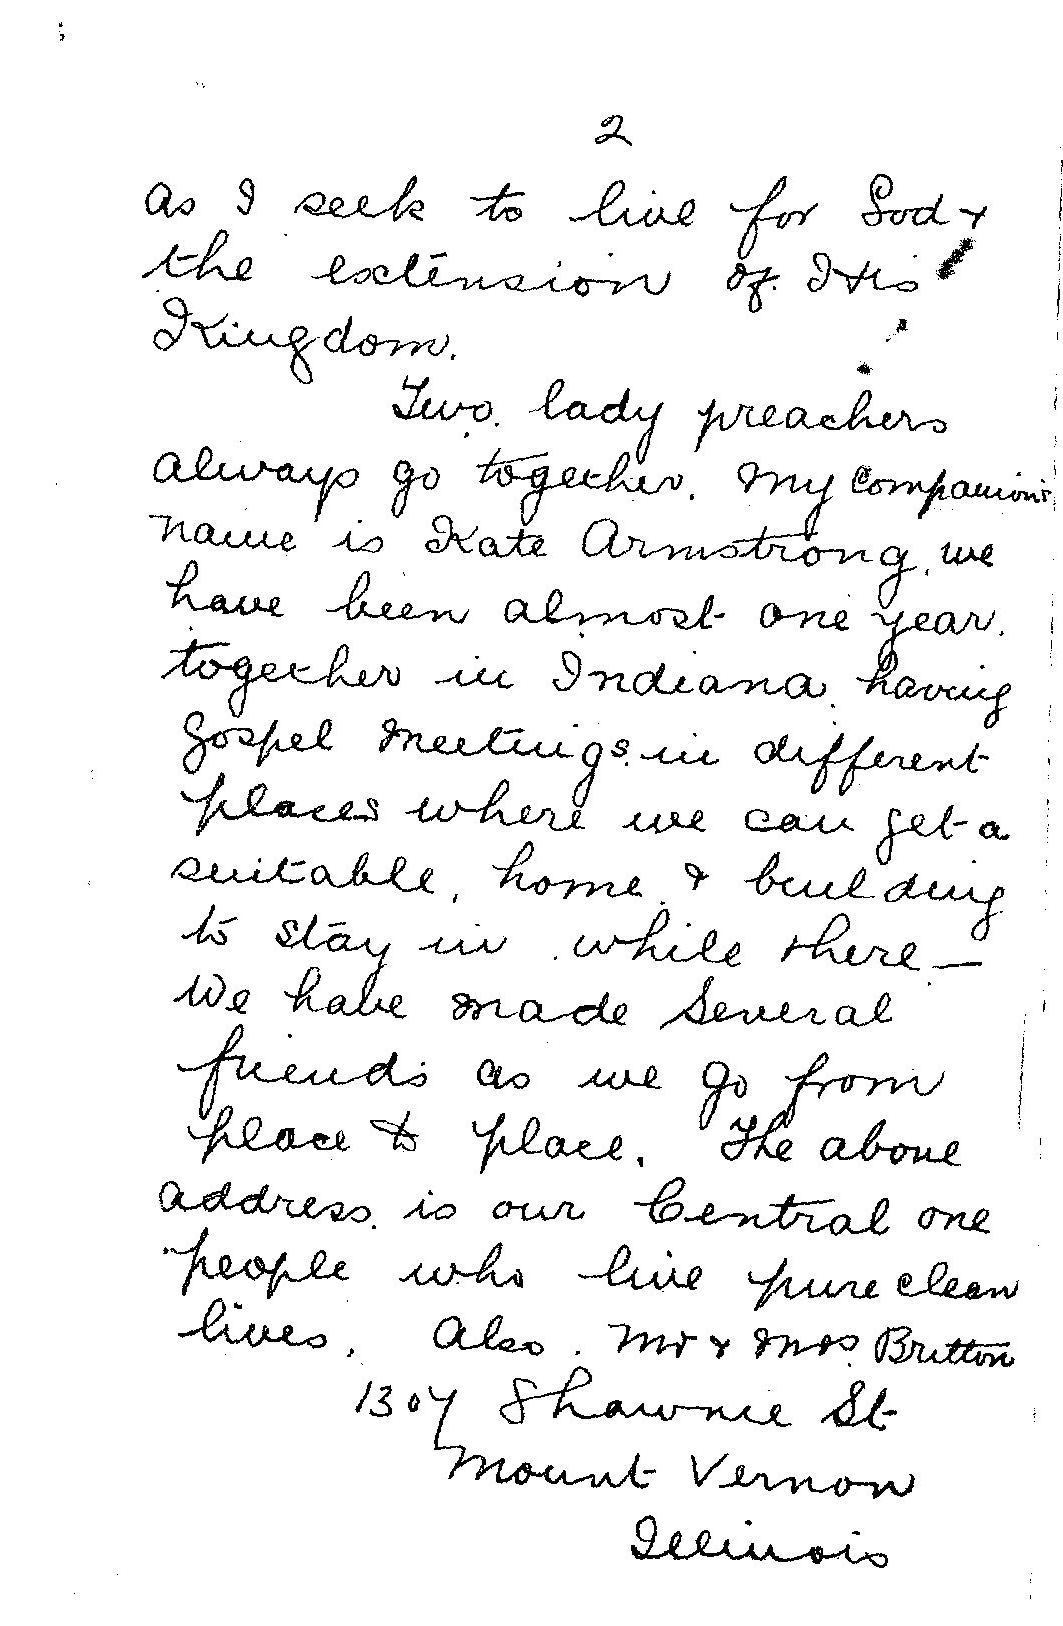 2
as I seek to live for God &
the extension of His
Kingdom.
Two lady preachers
always go together. My Companion's
name is Kate Armstrong, we
have been almost one year
together in Indiana having
gospel meetings in different
places where we can get a
suitable, home & building
to stay in while there —
We have made several
friends as we go from
place to place. The above
address is our Central one
people who live pure clean
lives. Also. Mr & Mrs. Britton
1307 Shawnie St
Mount Vernon
Illinois